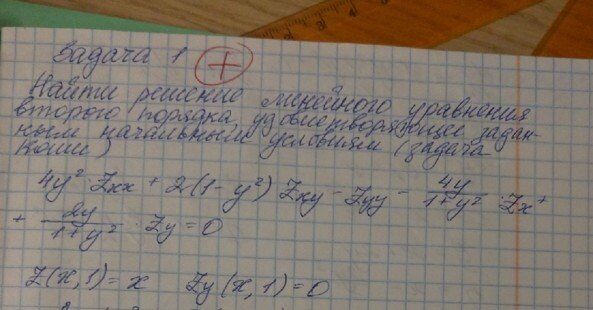 Задача 1 +
Найти решение линейного уравнения
второго порядка, удовлетворяющее задан-
ным начальным условиям (задача
Коши)
4y² · Zxx + 2(1 - y²) Zxy - Zyy - 4y/(1+y²) · Zx +
+ 2y/(1+y²) · Zy = 0
Z(x, 1) = x Zy(x, 1) = 0